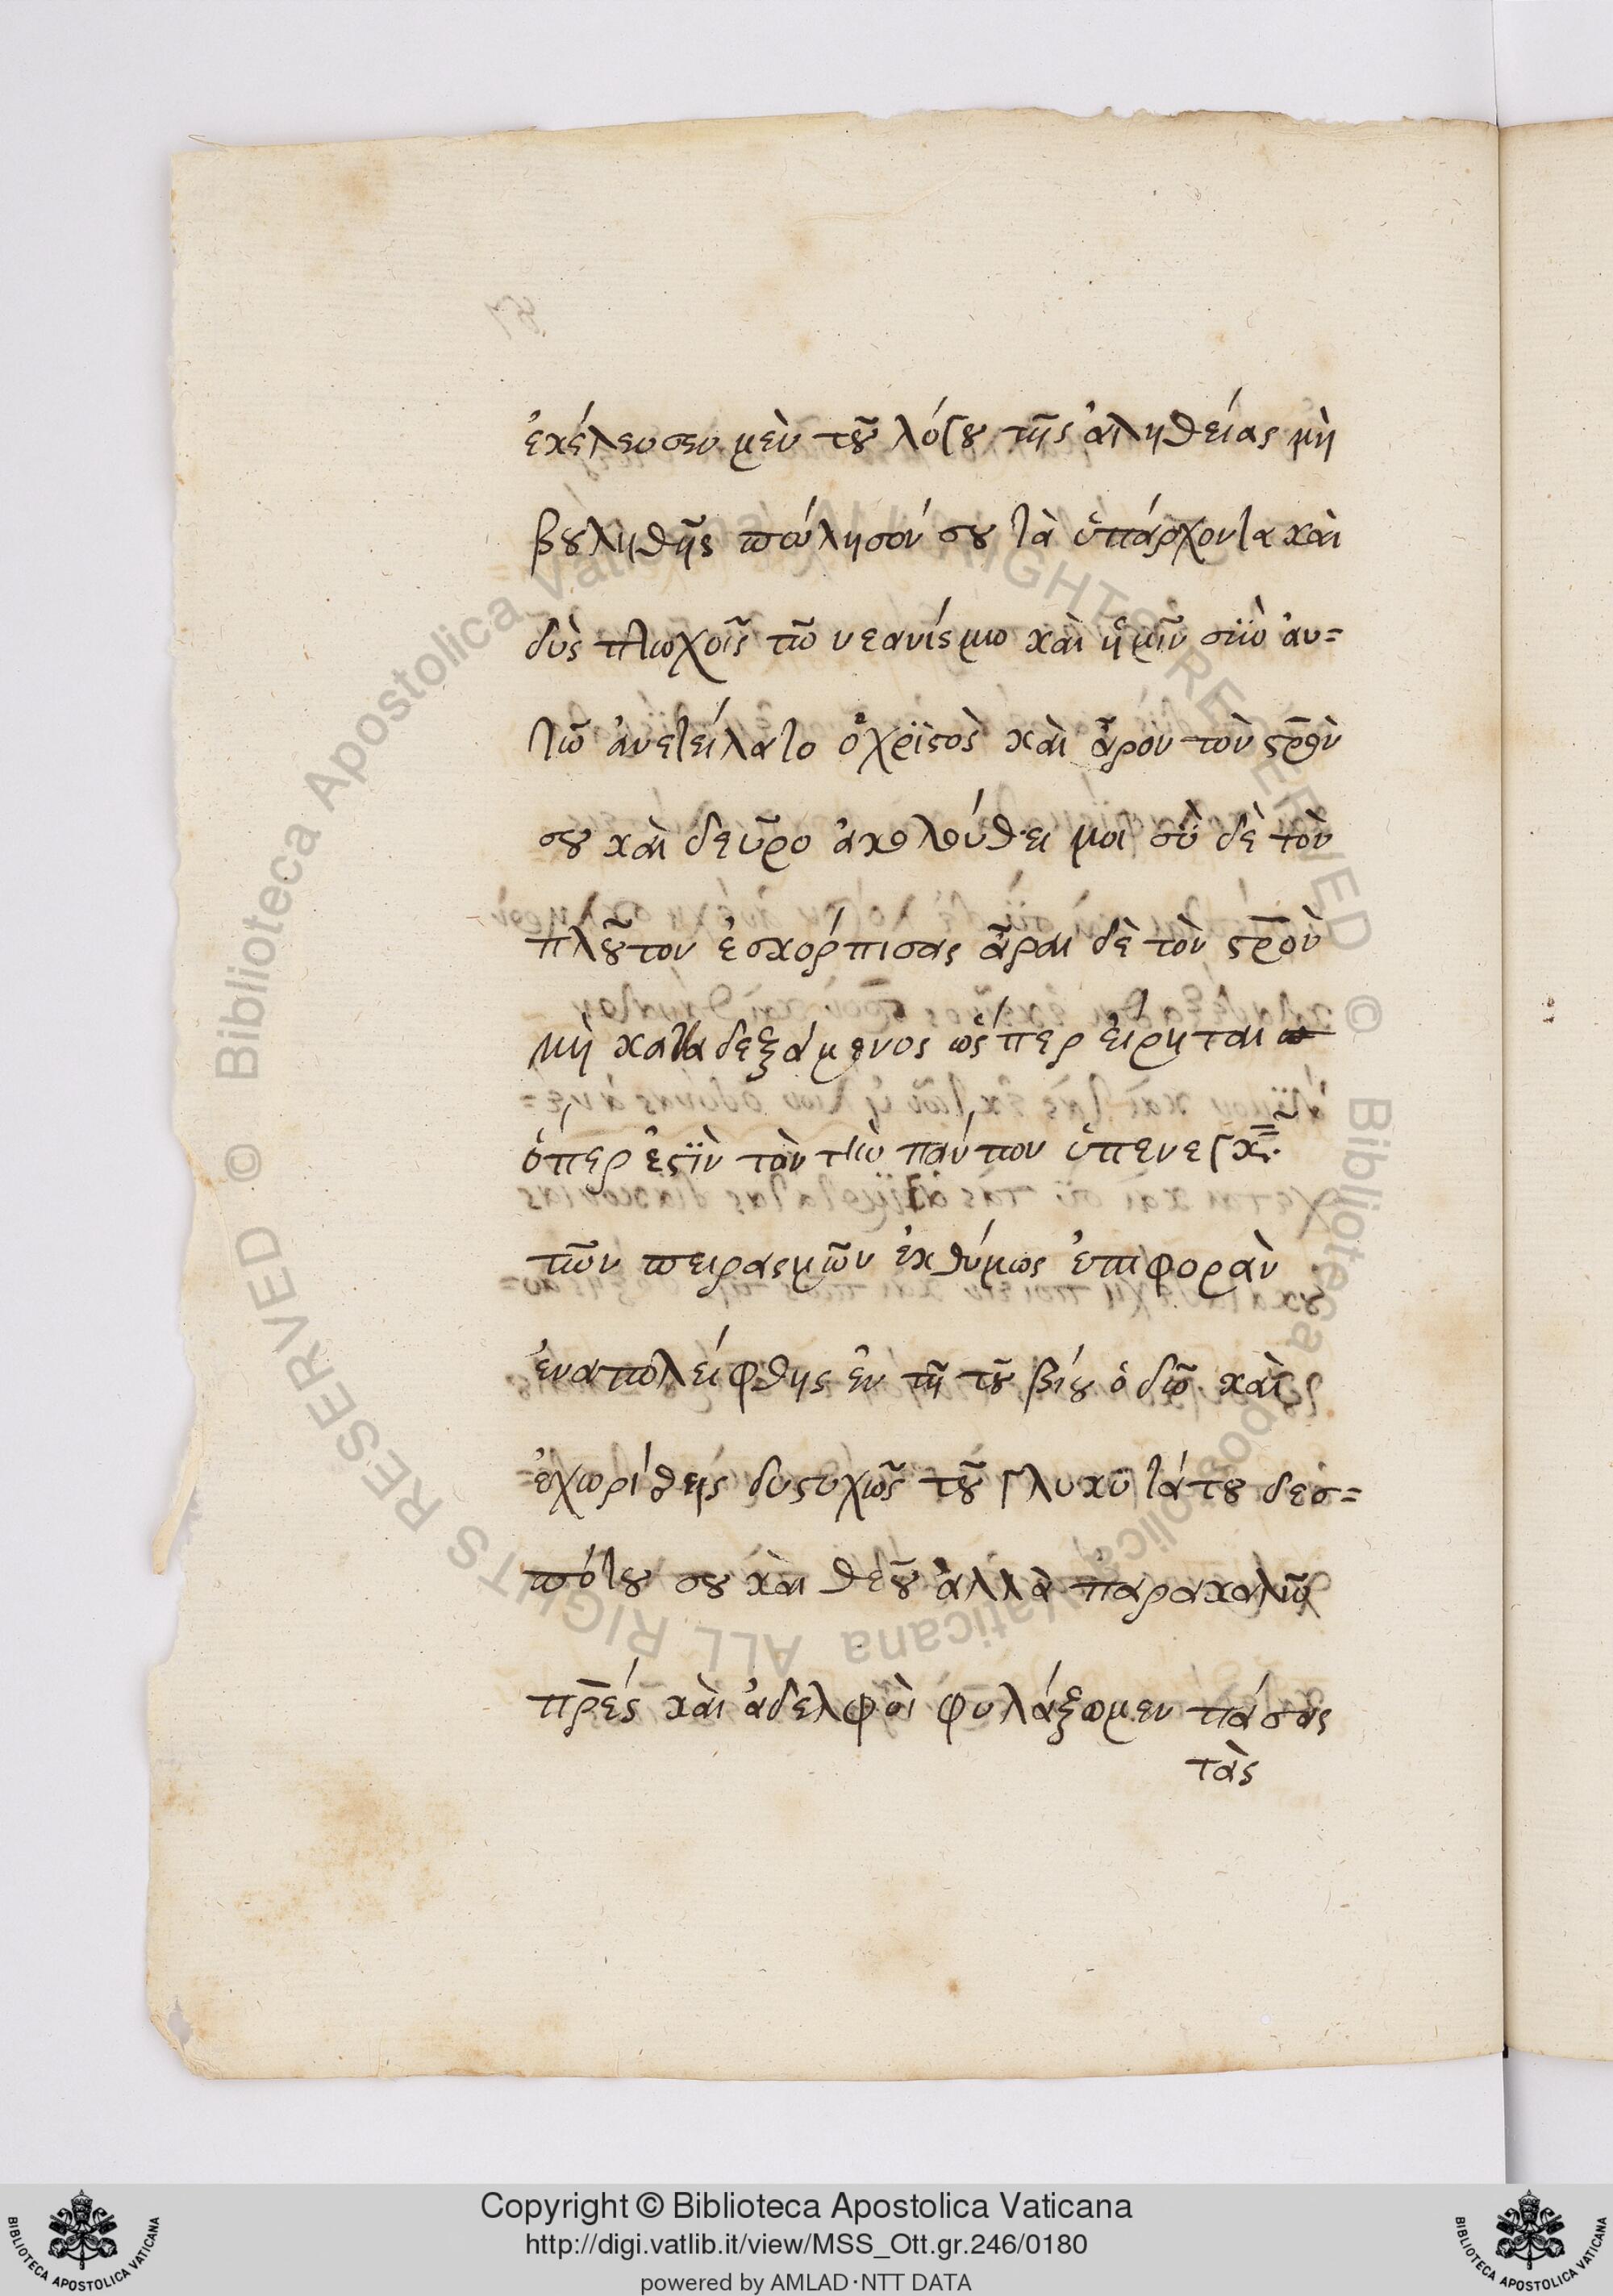 ἐκέλευσεν μὲν τοῦ λόγου τῆς ἀληθείας μὴ
βουληθῆς πώλησόν σου τὰ ὑπάρχοντα καὶ
δὺς πτωχοῖς τῶ νεανίσμω καὶ ἡμῖν σὺν ἀυ=
τῶ ἀνετείλατο ὁ χρϊστὸς καὶ ἆρον τὸν σ̅ρ̅ὸν
σου καὶ δεῦρο ἀκολούθει μοι σὺ δὲ τὸν
πλοῦτον ἐσκόρπισας ἆραι δὲ τὸν σ̅ρ̅ὸν
μὴ καταδεξάμενος ὥσπερ εἴρηται
ὅπερ ἐστὶν τὸν τὴν πάντων ὑπενεγκ
τῶν πειρασμῶν ἐκθύμως ἐπιφορὰν
ἐναπολείφθης ἐν τῆ τοῦ βίου ὁδῶ καὶ
ἐχωρίθης δυστυχῶς τοῦ γλυκϋτάτου δεσ=
πότου σου καὶ θεοῦ ἀλλὰ παρακαλῶ
π̅ρ̅ές καὶ ἀδελφοὶ φυλάξωμεν πάσας
τὰς
Copyright © Biblioteca Apostolica Vaticana
http://digi.vatlib.it/view/MSS_Ott.gr.246/0180
powered by AMLAD·NTT DATA
BIBLIOTECA APOSTOLICA VATICANA
BIBLIOTECA APOSTOLICA VATICANA
© Biblioteca Apostolica Vaticana ALL RIGHTS RESERVED © Biblioteca Apostolica Vaticana ALL RIGHTS RESERVED